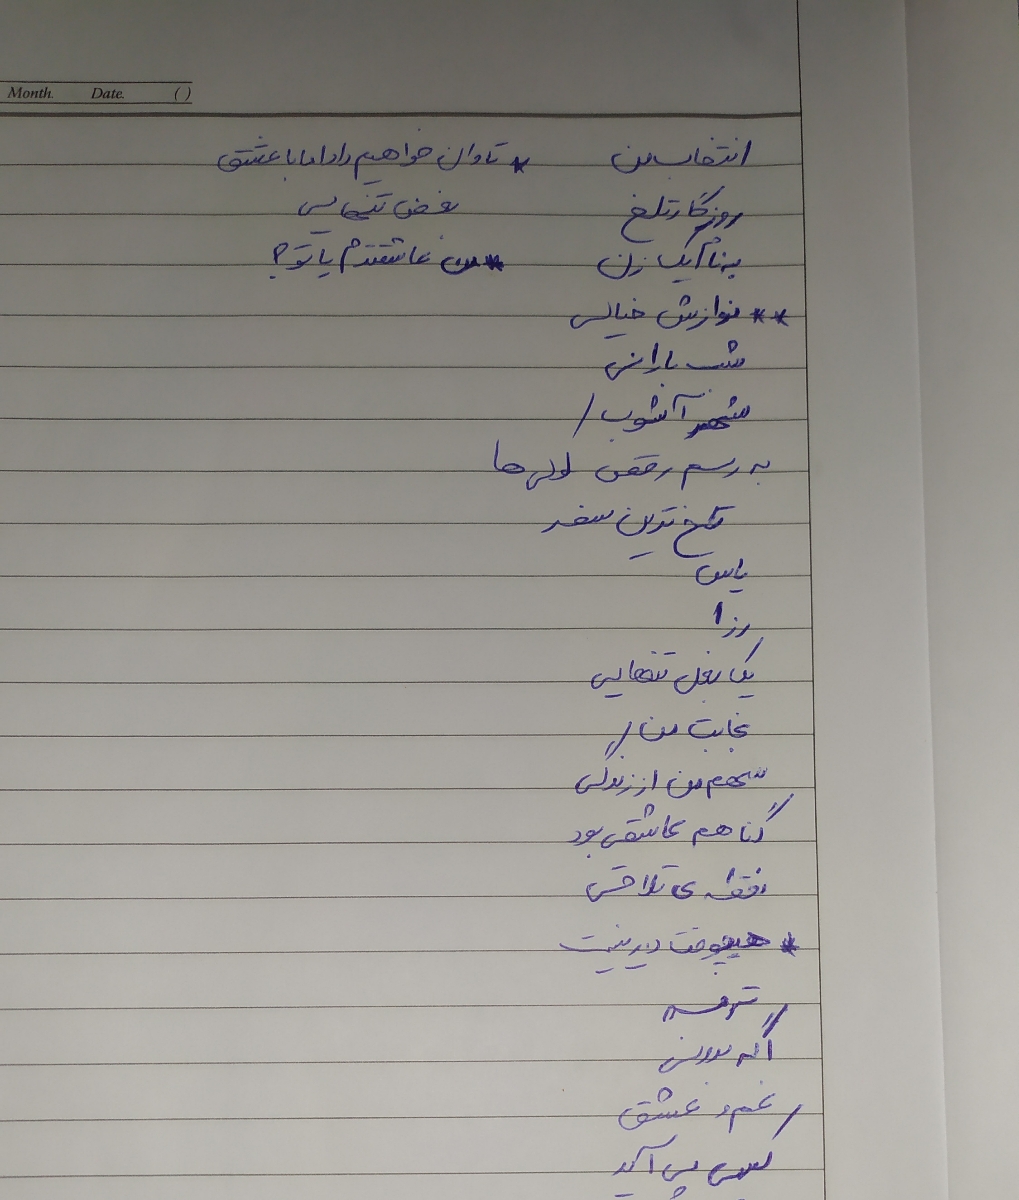 Month. Date. ( )
انتخاب من * تاوان خواهیم داد اما با عشق
روزگار تلخ بغض تنهایی
به نام یک زن * من عاشقترم یا تو؟
** نوازش خیالی
شب بارانی
شهر آشوب /
به رسم رقص لولی ها
تلخ ترین سفر
یاس
رزا
یک بغل تنهایی
نجابت من /
سهم من از زندگی
گناهم عاشقی بود
نقطه ی تلاقی
* هیچوقت دیر نیست
ترمه
اگه بدونی
غم و عشق
کسی می آید